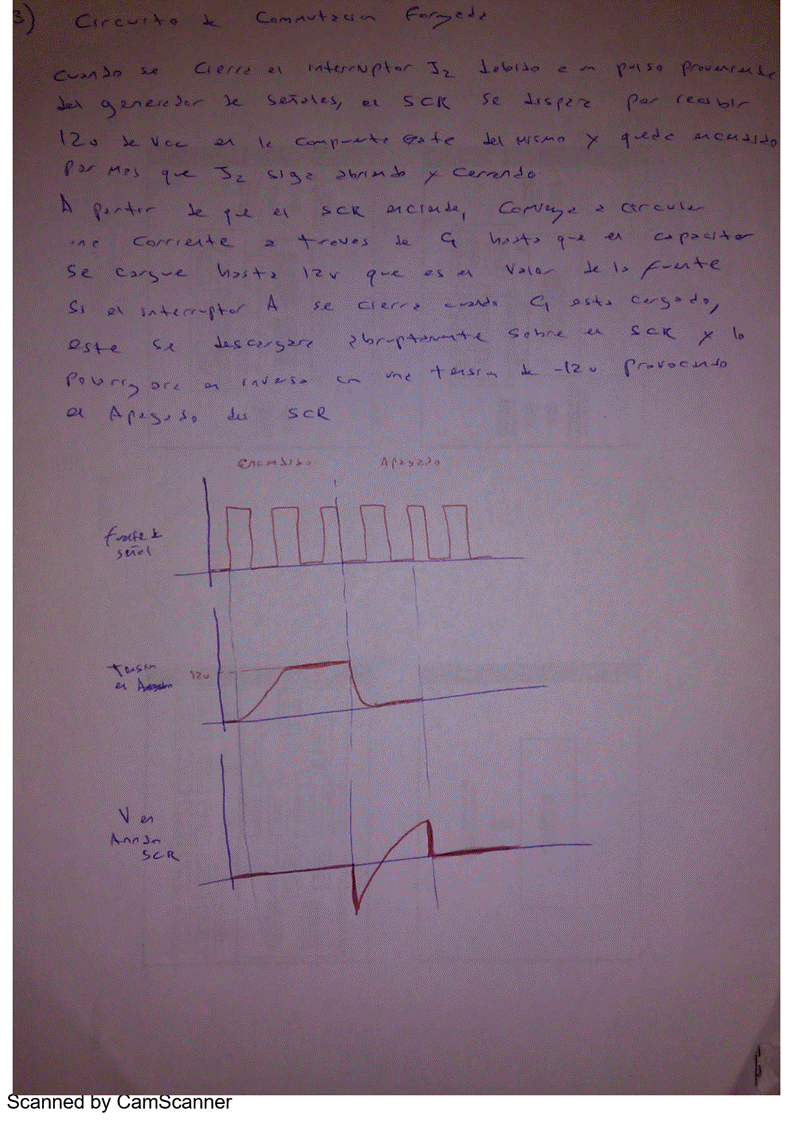 3) Circuito de Conmutacion Forzada
Cuando se cierra el interruptor J2 debido a un pulso proveniente
del generador de señales, el SCR se dispara por recibir
12v de Vcc en la compuerta Gate del mismo y queda encendido
por mas que J2 siga abriendo y cerrando
A partir de que el SCR enciende, comienza a circular
una corriente a traves de C1 hasta que el capacitor
se cargue hasta 12v que es el valor de la fuente
Si el interruptor A se cierra cuando C1 esta cargado,
este se descargara abruptamente sobre el SCR y lo
polarizara en inversa con una tension de -12v provocando
el Apagado del SCR
Encendido Apagado
Fuente de
señal
Tension
en
12v
V en
Anodo
SCR
Scanned by CamScanner